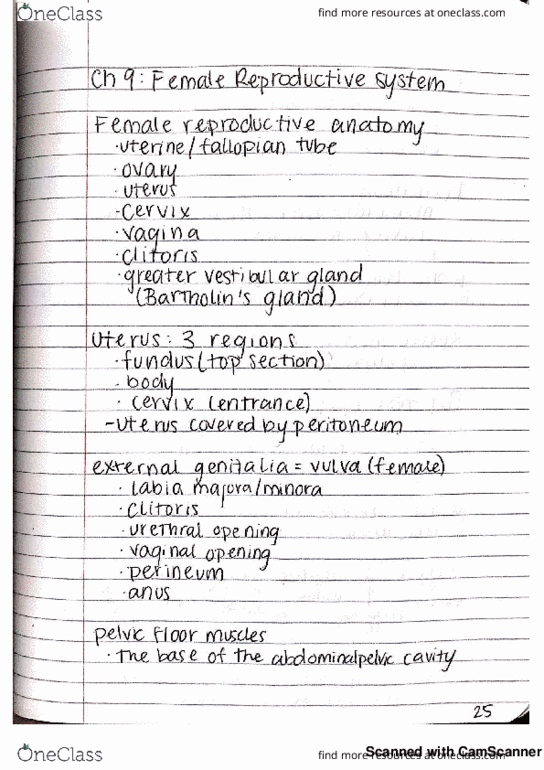 OneClass
find more resources at oneclass.com
Ch 9: Female Reproductive system
Female reproductive anatomy
·uterine/fallopian tube
·ovary
·uterus
·cervix
·vagina
·clitoris
·greater vestibular gland
(Bartholin's gland)
Uterus: 3 regions
·fundus (top section)
·body
·cervix (entrance)
-uterus covered by peritoneum
external genitalia = vulva (female)
·labia majora/minora
·clitoris
·urethral opening
·vaginal opening
·perineum
·anus
pelvic floor muscles
·the base of the abdominalpelvic cavity
25
OneClass
find more resources at oneclass.com
Scanned with CamScanner